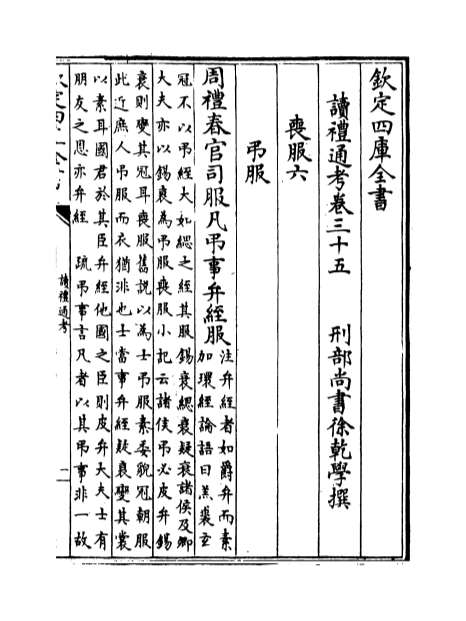 欽定四庫全書
讀禮通考卷三十五　刑部尚書徐乾學撰
喪服六
弔服
周禮春官司服凡弔事弁絰服
注弁絰者如爵弁而素
加環絰論語曰羔裘玄
冠不以弔絰大如緦之絰其服錫衰緦衰疑衰諸侯及卿
大夫亦以錫衰為弔服喪服小記云諸侯弔必皮弁錫
衰則變其冠耳喪服舊說以為士弔服素委貌冠朝服
此近庶人弔服而衣猶非也士當事弁絰疑衰變其裳
以素耳國君於其臣弁絰他國之臣則皮弁大夫士有
朋友之恩亦弁絰　疏弔事言凡者以其弔事非一故
讀禮通考